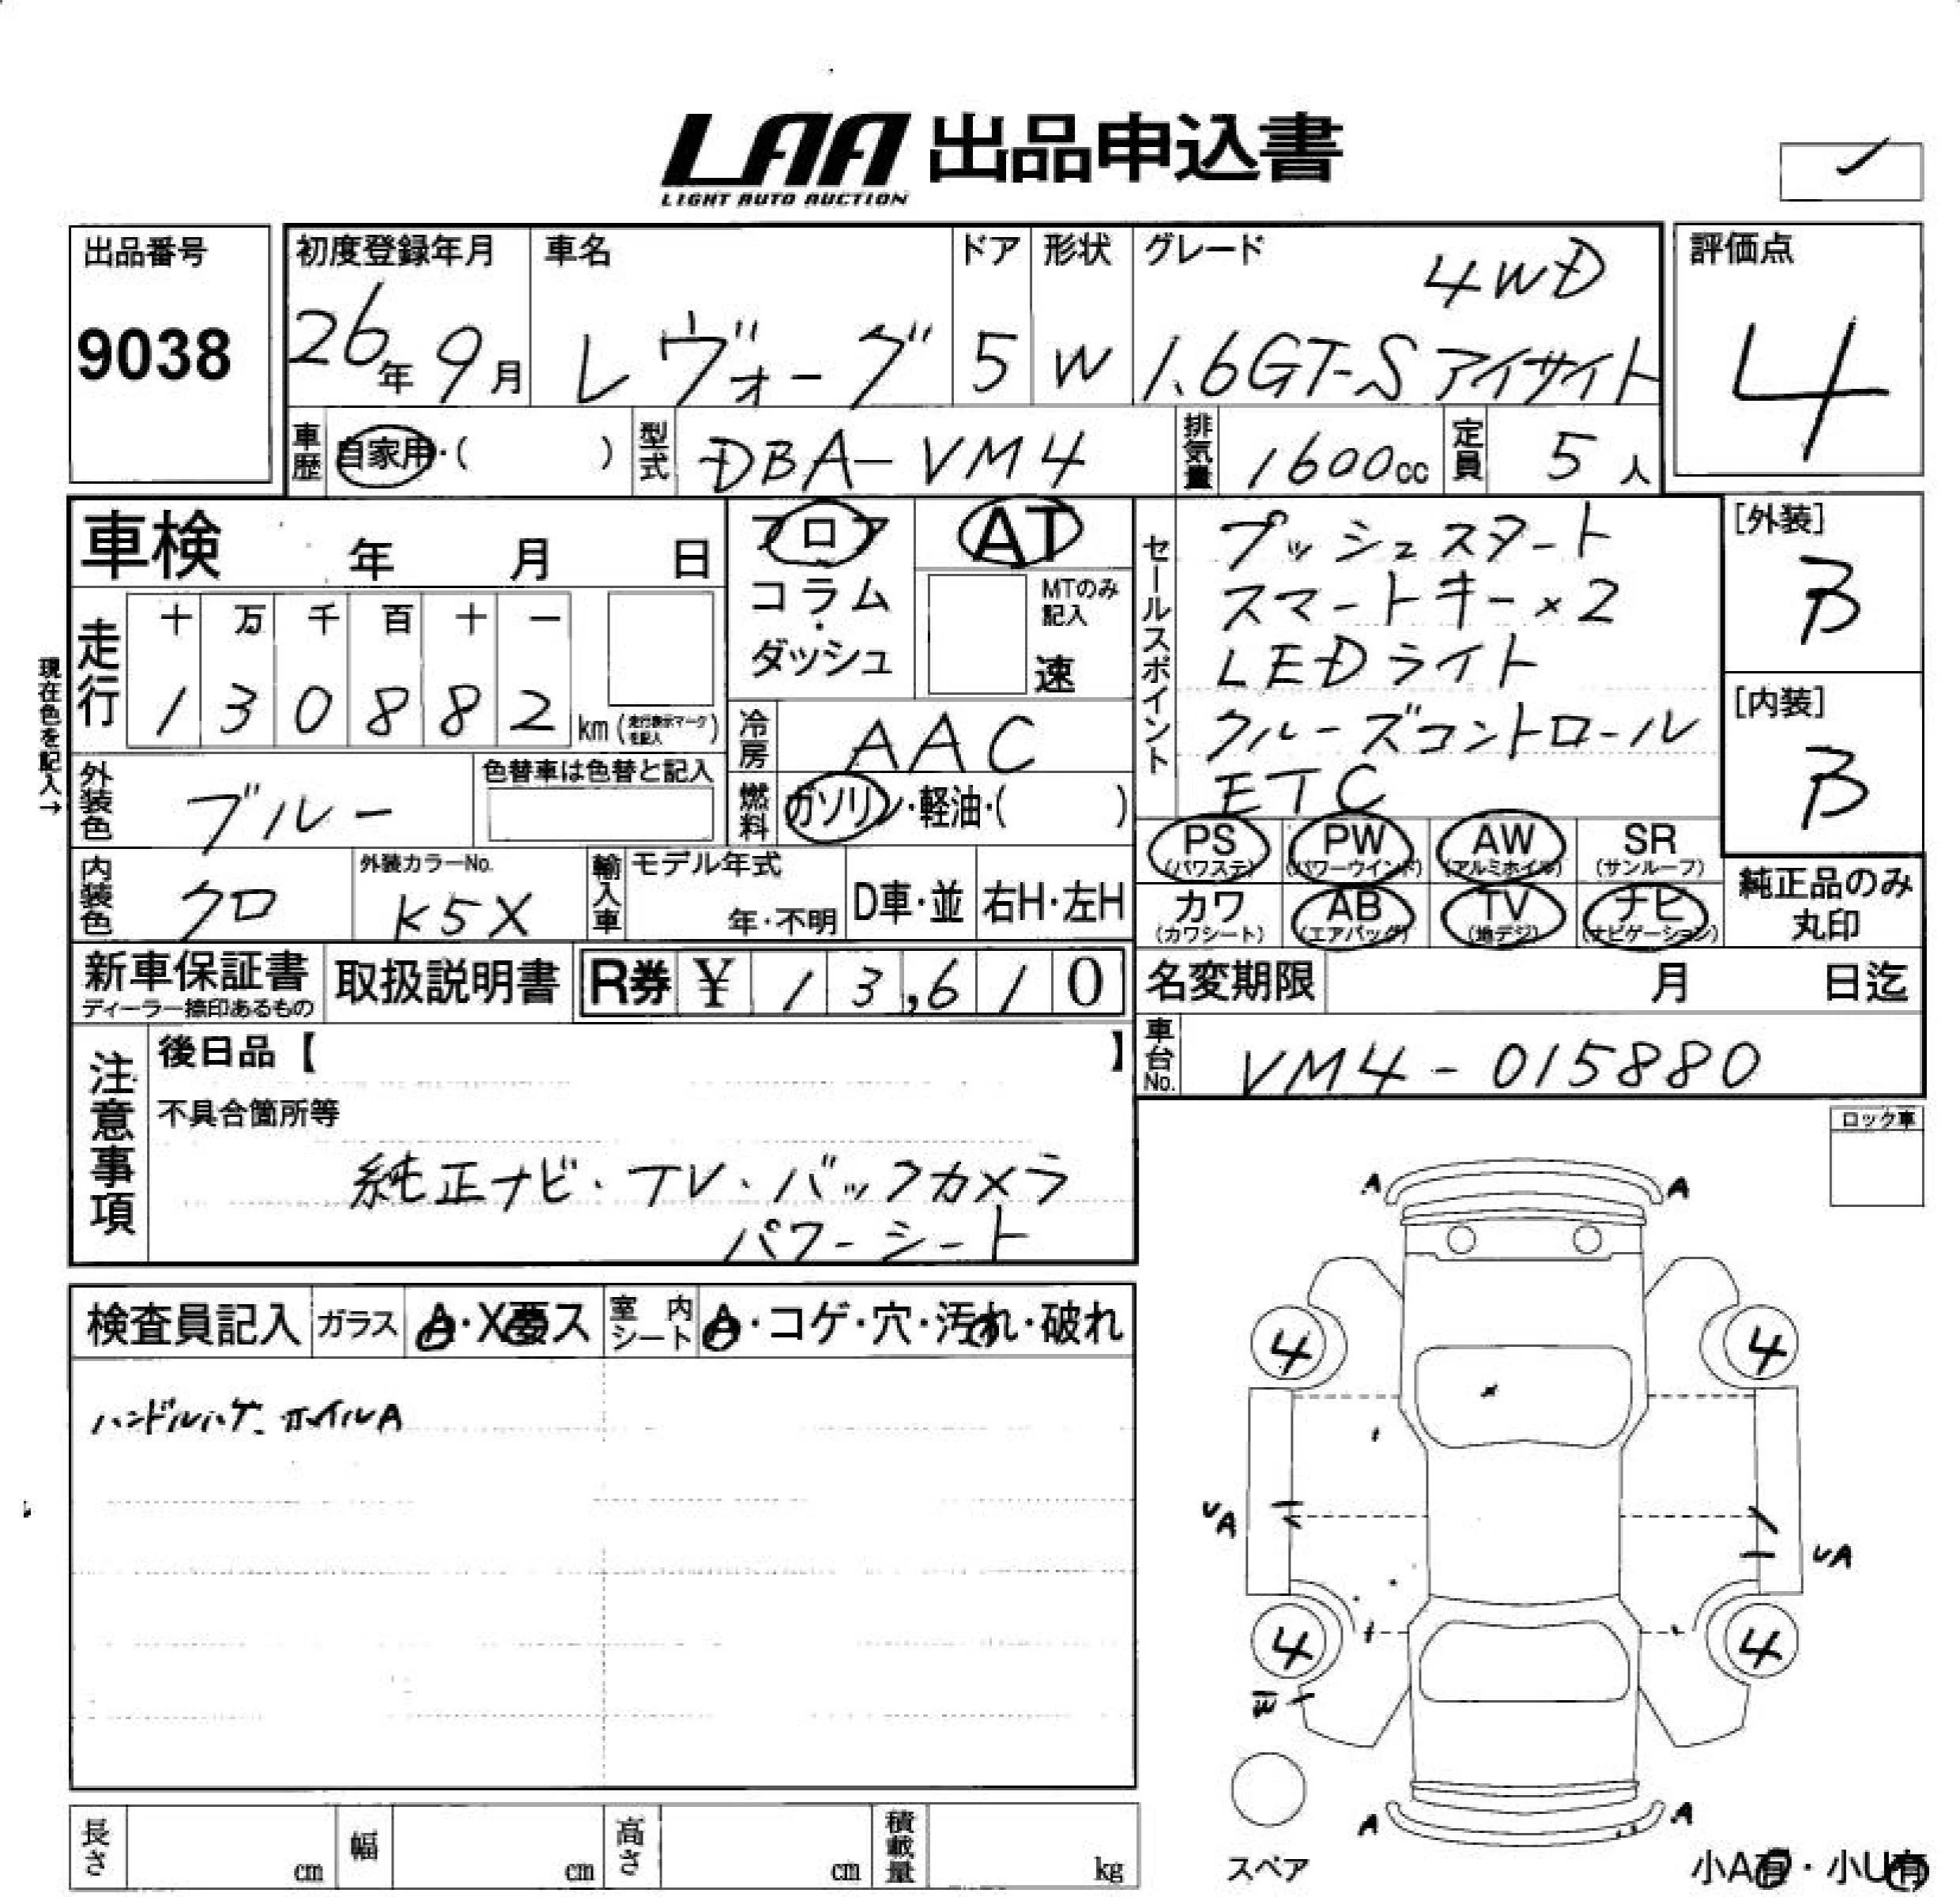 LAA 出品申込書
LIGHT AUTO AUCTION
出品番号
9038
初度登録年月
26年9月
車名
レヴォーグ
ドア
5
形状
W
グレード
4WD
1.6GT-S アイサイト
評価点
4
車歴 自家用・( )
型式 DBA-VM4
排気量 1600cc
定員 5人
車検 年 月 日
フロア
コラム
・
ダッシュ
AT
MTのみ記入
速
現在色を記入→
走行
十 万 千 百 十 一
1 3 0 8 8 2 km (走行表示マークを記入)
冷房 AAC
燃料 ガソリン・軽油・( )
外装色 ブルー
色替車は色替と記入
内装色 クロ
外装カラーNo.
K5X
輸入車
モデル年式
年・不明
D車・並
右H・左H
セールスポイント
プッシュスタート
スマートキー×2
LEDライト
クルーズコントロール
ETC
[外装]
B
[内装]
B
PS (パワステ) PW (パワーウインド) AW (アルミホイル) SR (サンルーフ)
カワ (カワシート) AB (エアバッグ) TV (地デジ) ナビ (ナビゲーション)
純正品のみ
丸印
新車保証書
ディーラー捺印あるもの
取扱説明書
R券 ¥ 13,610
名変期限 月 日迄
車台No. VM4-015880
注意事項
後日品【 】
不具合箇所等
純正ナビ・TV・バックカメラ
パワーシート
ロック車
検査員記入
ガラス A・X要ス
室内シート A・コゲ・穴・汚れ・破れ
ハンドルハゲ、ホイルA
A A
4 4
UA UA
4 4
W
A A
スペア
長さ cm
幅 cm
高さ cm
積載量 kg
小A有・小U有